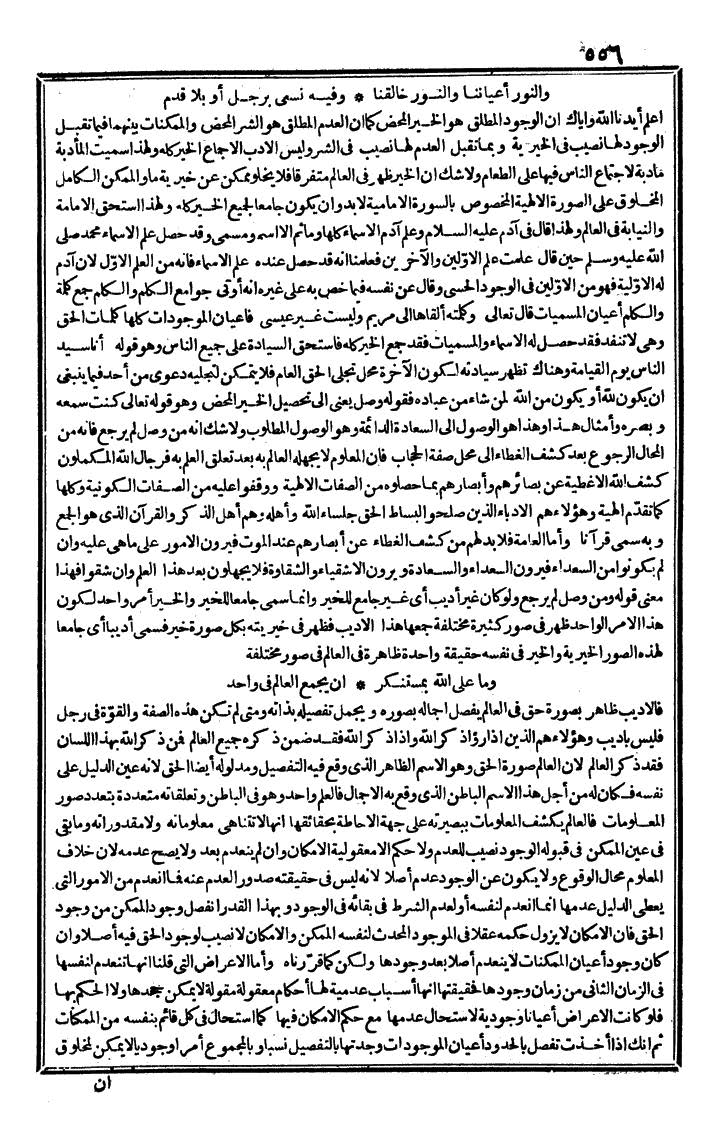 ٥٥٦
والنور أعياننا والنور خالقنا * وفيه نسى برجل أو بلا قدم
اعلم أيدنا الله واياك ان الوجود المطلق هو الخير المحض كما ان العدم المطلق هو الشر المحض والممكنات بينهما فبما تقبل
الوجود لها نصيب فى الخيرية وبما تقبل العدم لها نصيب فى الشر وليس الادب الاجماع الخير كله ولهذا سميت المأدبة
مأدبة لاجتماع الناس فيها على الطعام ولاشك ان الخير ظهر فى العالم متفرقا فلا يخلو ممكن عن خيرية ما والممكن الكامل
المخلوق على الصورة الالهية المخصوص بالسورة الامامية لابد وان يكون جامعا لجميع الخير كله ولهذا استحق الامامة
والنيابة فى العالم ولهذا قال فى آدم عليه السلام وعلم آدم الاسماء كلها وماثم الااسم ومسمى وقد حصل علم الاسماء محمد صلى
الله عليه وسلم حين قال علمت علم الاوّلين والآخرين فعلمنا انه قد حصل عنده علم الاسماء فانه من العلم الاوّل لان آدم
له الاولية فهو من الاوّلين فى الوجود الحسى وقال عن نفسه فيما خص به على غيره انه أوتى جوامع الكلم والكلم جمع كلمة
والكلم أعيان المسميات قال تعالى وكلمته ألقاها الى مريم وليست غير عيسى فاعيان الموجودات كلها كلمات الحق
وهى لا تنفد فقد حصل له الاسماء والمسميات فقد جمع الخير كله فاستحق السيادة على جميع الناس وهو قوله أنا سيد
الناس يوم القيامة وهناك تظهر سيادته لكون الآخرة محل تجلى الحق العام فلا يتمكن لتجليه دعوى من أحد فيما ينبغى
ان يكون لله أو يكون من الله لمن شاء من عباده فقوله وصل يعنى الى تحصيل الخير المحض وهو قوله تعالى كنت سمعه
وبصره وأمثال هذا وهذا هو الوصول الى السعادة الدائمة وهو الوصول المطلوب ولاشك انه من وصل لم يرجع فانه من
المحال الرجوع بعد كشف الغطاء الى محل صفة الحجاب فان المعلوم لا يجهله العالم به بعد تعلق العلم به فرجال الله المكملون
كشف الله الاغطية عن بصائرهم وأبصارهم بما حصلوه من الصفات الالهية ووقفوا عليه من الصفات الكونية وكلها
كما تقدّم الهية وهؤلاء هم الادباء الذين صلحوا لبساط الحق جلساء الله وأهله وهم أهل الذكر والقرآن الذى هو الجمع
وبه سمى قرآنا وأما العامة فلابد لهم من كشف الغطاء عن أبصارهم عند الموت فيرون الامور على ماهى عليه وان
لم يكونوا من السعداء فيرون السعداء والسعادة ويرون الاشقياء والشقاوة فلا يجهلون بعد هذا العلم وان شقوا فهذا
معنى قوله ومن وصل لم يرجع ولو كان غير أديب أى غير جامع للخير وانما سمى جامعا للخير والخير أمر واحد لكون
هذا الامر الواحد ظهر فى صور كثيرة مختلفة جمعها هذا الاديب فظهر فى خيريته بكل صورة خير فسمى أديبا أى جامعا
لهذه الصور الخيرية والخير فى نفسه حقيقة واحدة ظاهرة فى العالم فى صور مختلفة
وما على الله بمستنكر * ان يجمع العالم فى واحد
فالاديب ظاهر بصورة حق فى العالم يفصل اجماله بصوره ويجمل تفصيله بذاته ومتى لم تكن هذه الصفة والقوّة فى رجل
فليس باديب وهؤلاء هم الذين اذا رؤا ذكر الله واذا ذكر الله فقد ضمن ذكره جميع العالم فمن ذكر الله بهذا اللسان
فقد ذكر العالم لان العالم صورة الحق وهو الاسم الظاهر الذى وقع فيه التفصيل ومدلوله أيضا الحق لانه عين الدليل على
نفسه فكان له من أجل هذا الاسم الباطن الذى وقع به الاجمال فالعلم واحد وهو فى الباطن وتعلقاته متعددة بتعدد صور
المعلومات فالعالم يكشف المعلومات ببصيرته على جهة الاحاطة بحقائقها انها لا تتناهى معلوماته ولا مقدوراته وما بقى
فى عين الممكن فى قبوله الوجود نصيب للعدم ولا حكم الامعقولية الامكان وان لم ينعدم بعد ولا يصح عدمه لان خلاف
المعلوم محال الوقوع ولا يكون عن الوجود عدم أصلا لانه ليس فى حقيقته صدور العدم عنه فما انعدم من الامور التى
يعطى الدليل عدمها انما انعدم لنفسه أو لعدم الشرط فى بقائه فى الوجود وبهذا القدر انفصل وجود الممكن من وجود
الحق فان الامكان لا يزول حكمه عقلا فى الموجود المحدث لنفسه الممكن والامكان لا نصيب لوجود الحق فيه أصلا وان
كان وجود أعيان الممكنات لا ينعدم أصلا بعد وجودها ولكن كما قرّرناه وأما الاعراض التى قلنا انها تنعدم لنفسها
فى الزمان الثانى من زمان وجودها فحقيقتها انها أسباب عدمية لها أحكام معقولة مقولة لا يمكن جحدها ولا الحكم بها
فلو كانت الاعراض أعيانا وجودية لاستحال عدمها مع حكم الامكان فيها كما استحال فى كل قائم بنفسه من الممكنات
ثم انك اذا أخذت تفصل بالحدود أعيان الموجودات وجدتها بالتفصيل نسبا وبالمجموع أمرا وجوديا لا يمكن لمخلوق
ان